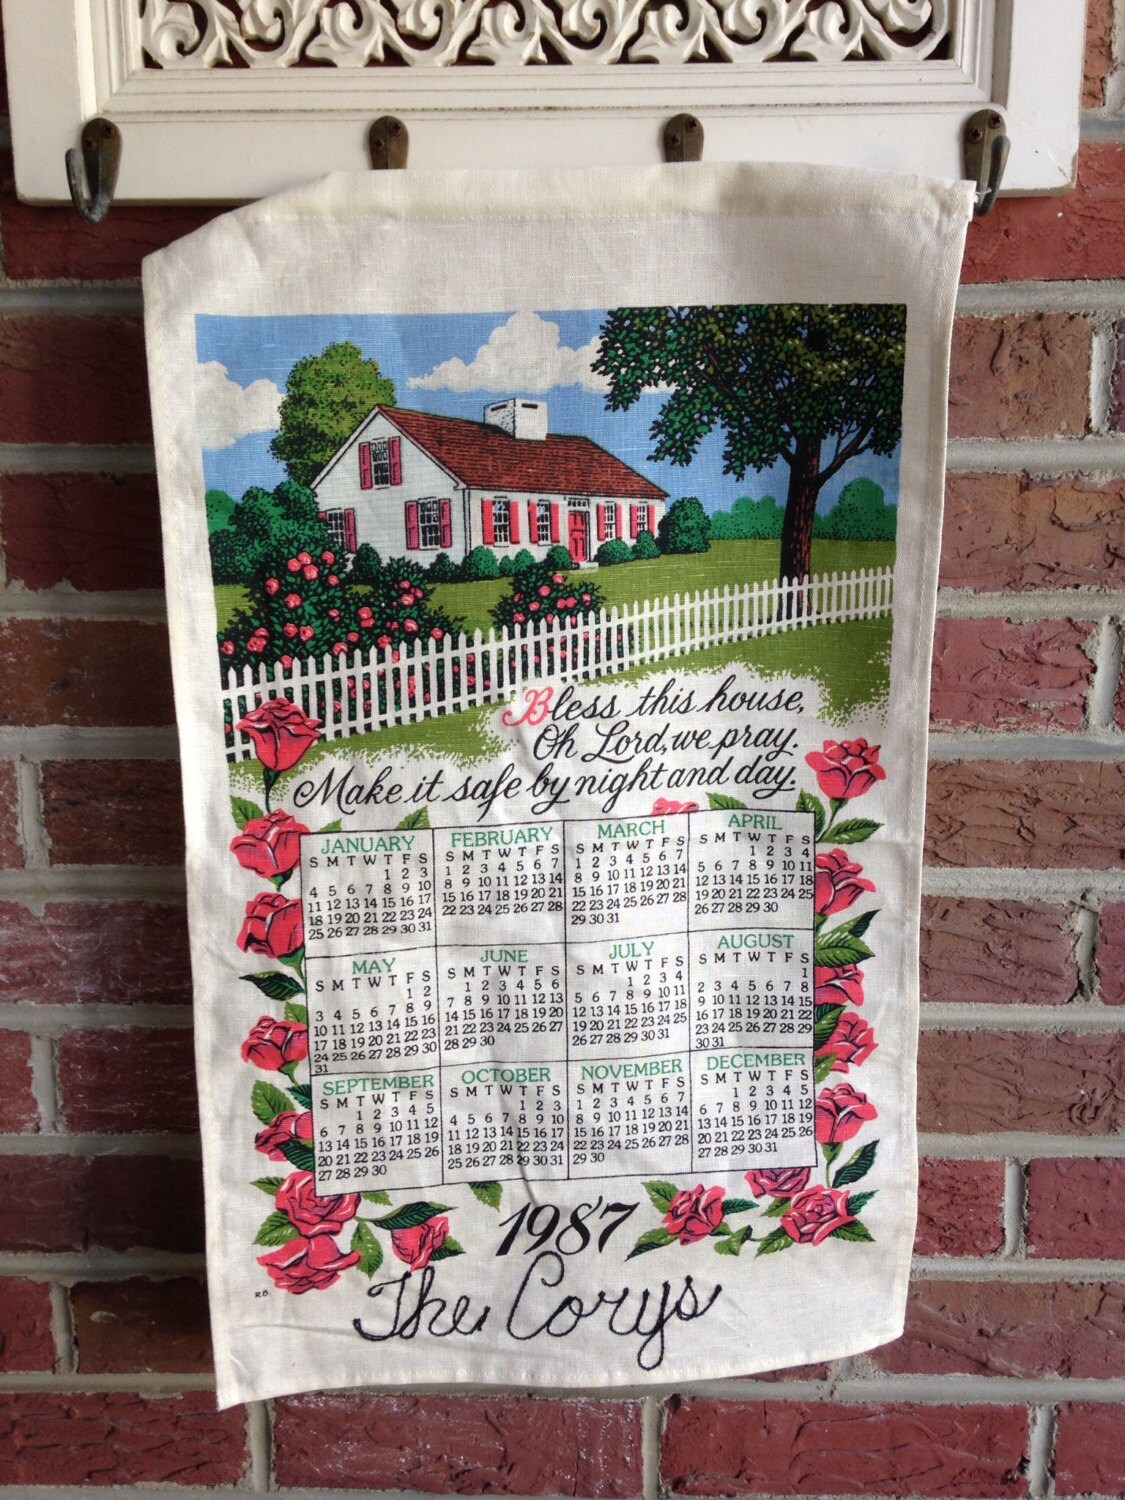 Bless this house,
Oh Lord, we pray.
Make it safe by night and day.
JANUARY
S M T W T F S
1 2 3
4 5 6 7 8 9 10
11 12 13 14 15 16 17
18 19 20 21 22 23 24
25 26 27 28 29 30 31
FEBRUARY
S M T W T F S
1 2 3 4 5 6 7
8 9 10 11 12 13 14
15 16 17 18 19 20 21
22 23 24 25 26 27 28
MARCH
S M T W T F S
1 2 3 4 5 6 7
8 9 10 11 12 13 14
15 16 17 18 19 20 21
22 23 24 25 26 27 28
29 30 31
APRIL
S M T W T F S
1 2 3 4
5 6 7 8 9 10 11
12 13 14 15 16 17 18
19 20 21 22 23 24 25
26 27 28 29 30
MAY
S M T W T F S
1 2
3 4 5 6 7 8 9
10 11 12 13 14 15 16
17 18 19 20 21 22 23
24 25 26 27 28 29 30
31
JUNE
S M T W T F S
1 2 3 4 5 6
7 8 9 10 11 12 13
14 15 16 17 18 19 20
21 22 23 24 25 26 27
28 29 30
JULY
S M T W T F S
1 2 3 4
5 6 7 8 9 10 11
12 13 14 15 16 17 18
19 20 21 22 23 24 25
26 27 28 29 30 31
AUGUST
S M T W T F S
1
2 3 4 5 6 7 8
9 10 11 12 13 14 15
16 17 18 19 20 21 22
23 24 25 26 27 28 29
30 31
SEPTEMBER
S M T W T F S
1 2 3 4 5
6 7 8 9 10 11 12
13 14 15 16 17 18 19
20 21 22 23 24 25 26
27 28 29 30
OCTOBER
S M T W T F S
1 2 3
4 5 6 7 8 9 10
11 12 13 14 15 16 17
18 19 20 21 22 23 24
25 26 27 28 29 30 31
NOVEMBER
S M T W T F S
1 2 3 4 5 6 7
8 9 10 11 12 13 14
15 16 17 18 19 20 21
22 23 24 25 26 27 28
29 30
DECEMBER
S M T W T F S
1 2 3 4 5
6 7 8 9 10 11 12
13 14 15 16 17 18 19
20 21 22 23 24 25 26
27 28 29 30 31
1987
The Corys